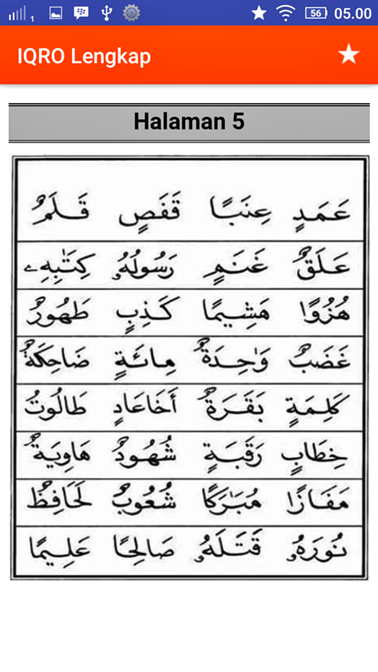 1
56
05.00
IQRO Lengkap
Halaman 5
عَمَدٍ عِنَبًا قَفَصٍ قَلَمٌ
عَلَقٌ غَنَمٍ رَسُولُهُۥ كِتٰبِهِۦ
هُزُوًا هَشِيمًا كَذِبٍ طَهُورٌ
غَضَبٌ وَٰحِدَةٌ مِائَةٍ ضَاحِكَةٌ
كَلِمَةٍ بَقَرَةٌ أَخَاعَادٍ طَالُوتُ
خِطَابٍ رَقَبَةٍ شُهُودٌ هَاوِيَةٌ
مَفَازًا مُبَٰرَكًا شُعُوبٌ لَحَافِظٌ
نُورَهُۥ قَتَلَهُۥ صَالِحًا عَلِيمًا